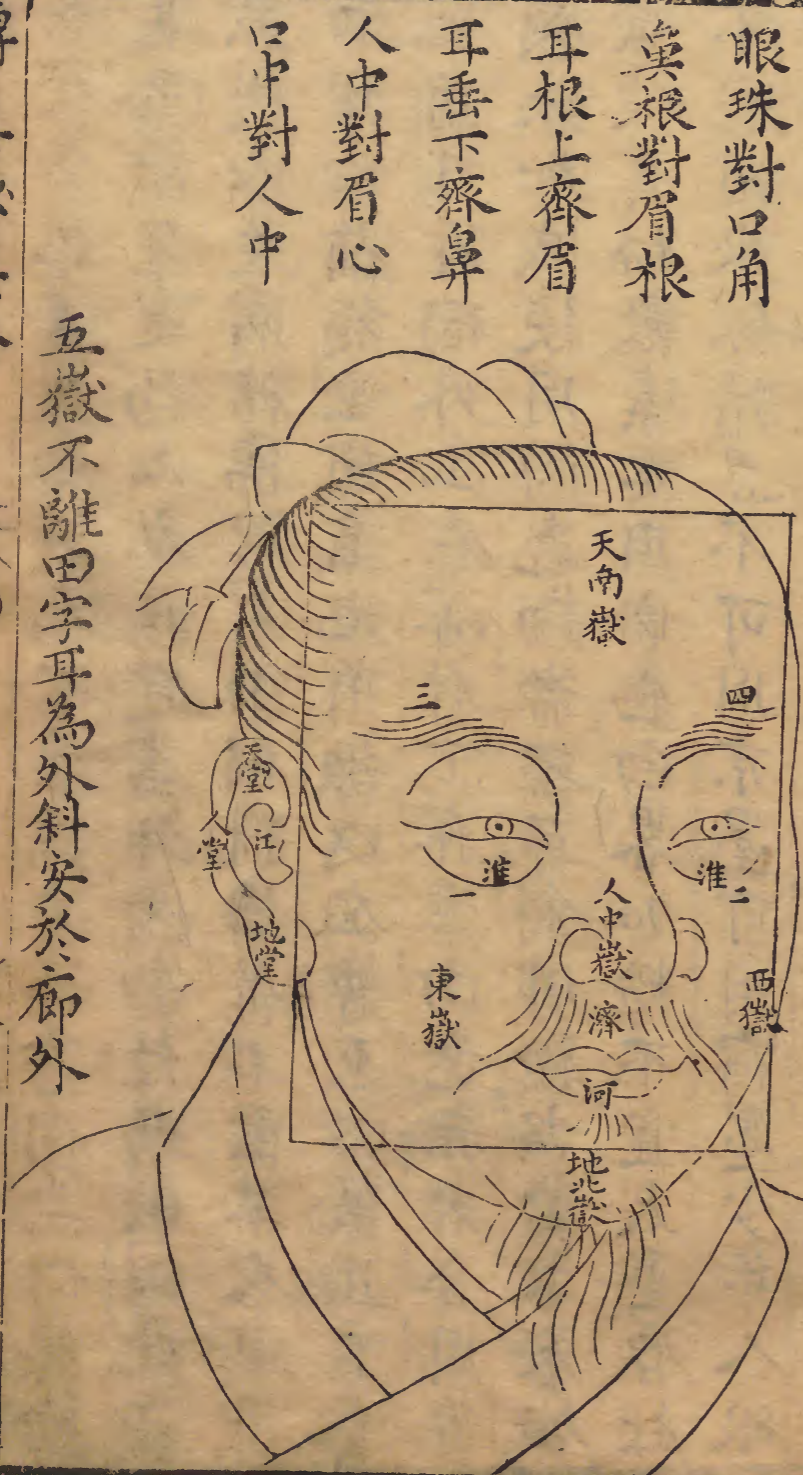 眼珠對口角
鼻根對眉根
耳根上齊眉
耳垂下齊鼻
人中對眉心
口中對人中
五嶽不離田字耳為外斜安於廊外
天南嶽
三
四
天堂
人堂
江
地堂
淮
一
淮
二
人中嶽
東嶽
西嶽
濟
河
地北嶽